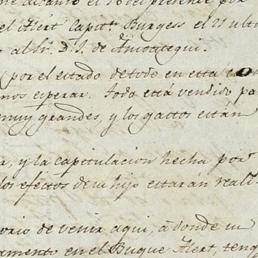 el Hert Capitn. Burgess el 21 ulti
al Sr. D. J. de Amotegui.
(por el estado de todo en esta
mos esperar. Todo está vendido pa
muy grandes, y los gastos están
a, y la capitulacion hecha por
los efectos de mi hijo estarán reald
orio de venir aqui, a donde su
amento en el Buque Hert, teng